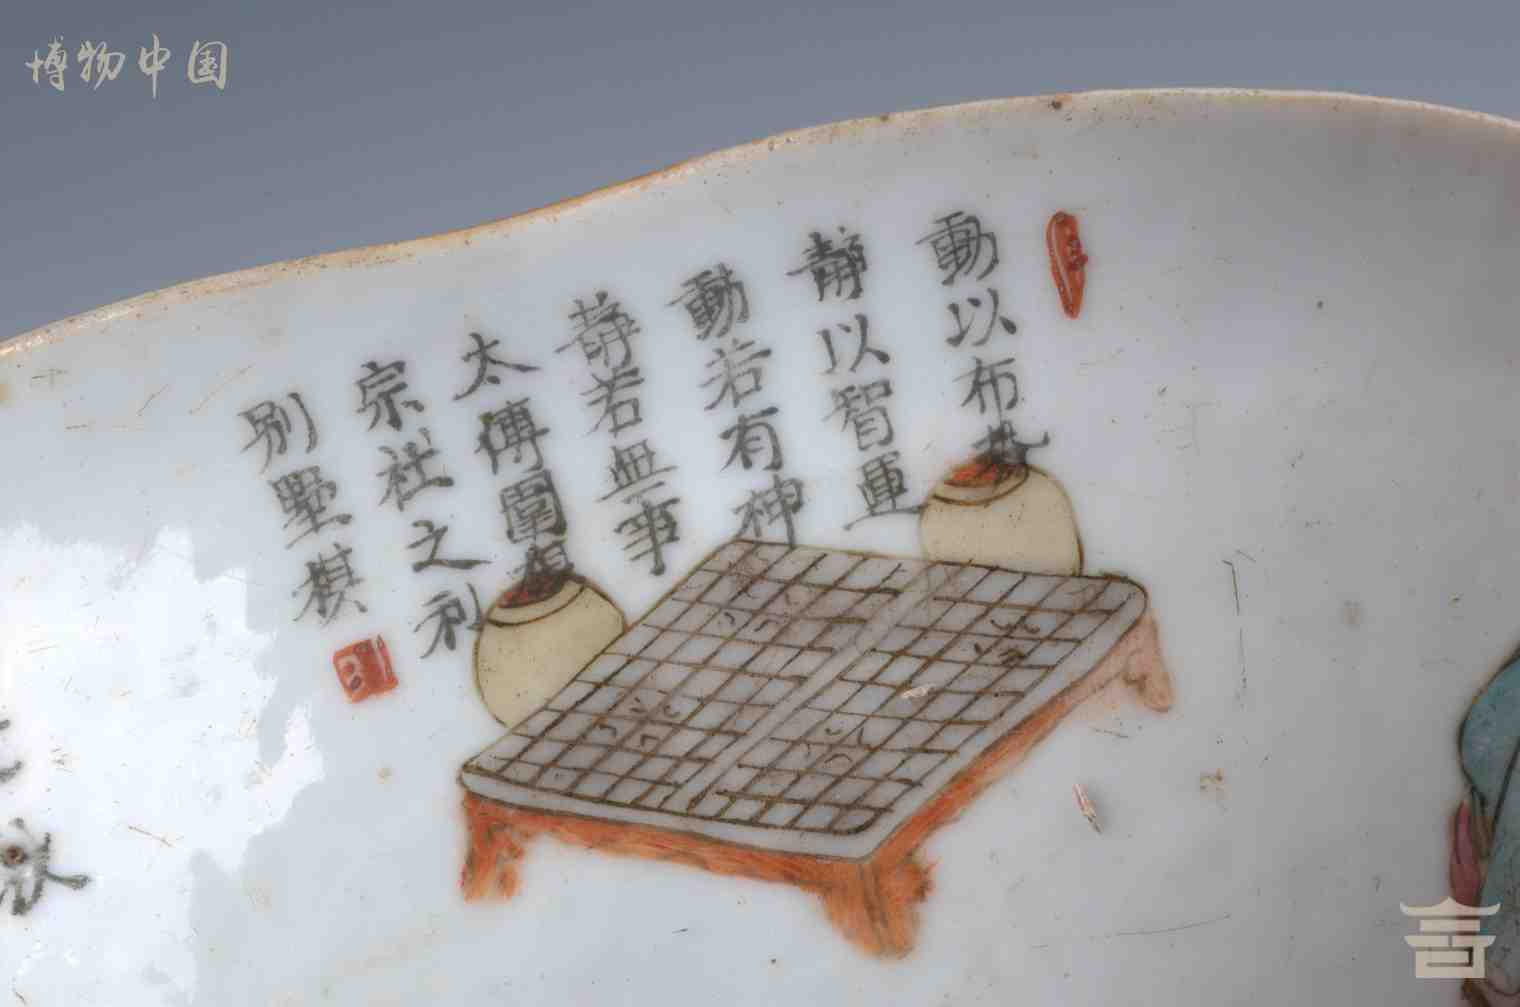 博物中国
動以布棊
静以智運
動若有神
静若無事
太傅圍棋
宗社之利
別墅棋